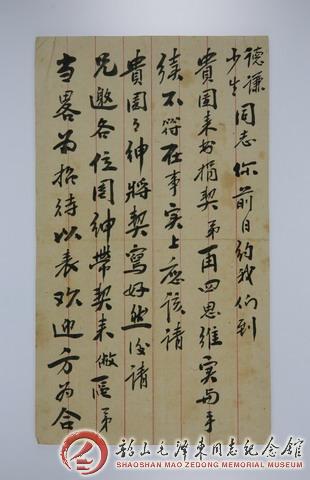 德谦
少生同志你前日约我们到
贵围来书捐契弟再四思维实与手
续不符在事实上应该请
贵围々绅将契写好然后请
兄邀各位围绅带契来敝区弟
当略为招待以表欢迎方为合
韶山毛泽东同志纪念馆
SHAOSHAN MAO ZEDONG MEMORIAL MUSEUM